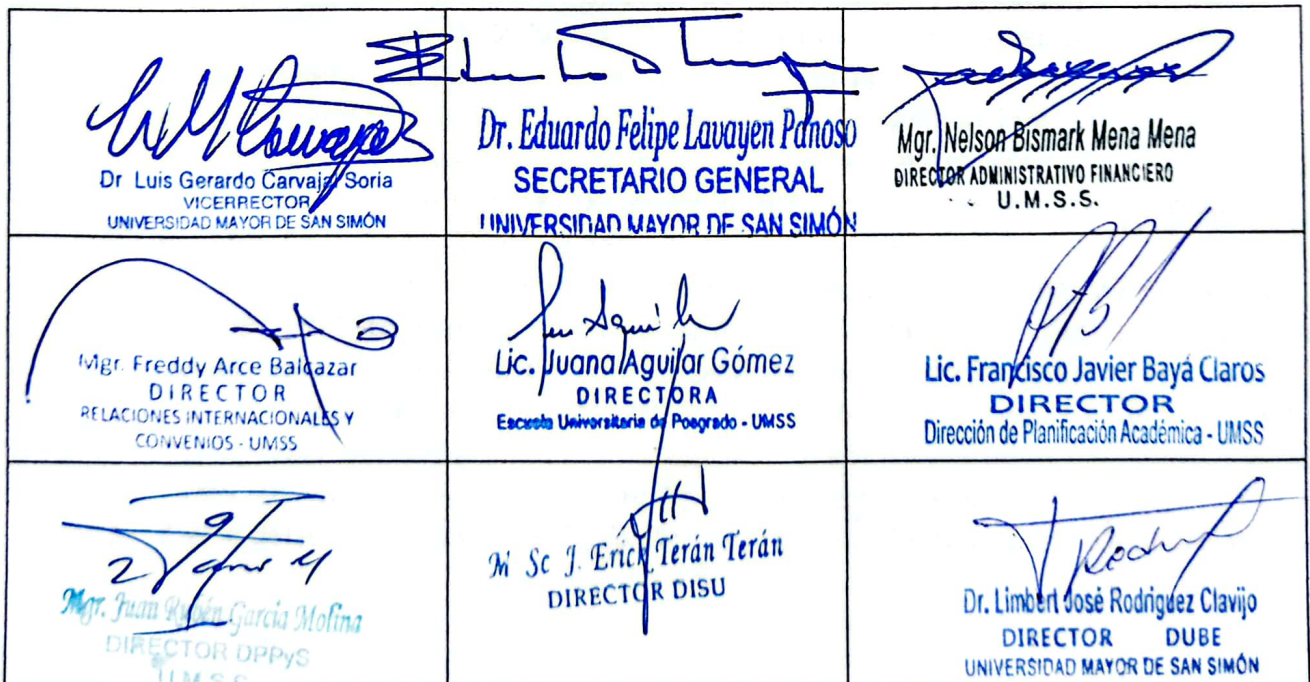 Dr Luis Gerardo Carvajal Soria
VICERRECTOR
UNIVERSIDAD MAYOR DE SAN SIMÓN
Dr. Eduardo Felipe Lavayen Panoso
SECRETARIO GENERAL
UNIVERSIDAD MAYOR DE SAN SIMÓN
Mgr. Nelson Bismark Mena Mena
DIRECTOR ADMINISTRATIVO FINANCIERO
U.M.S.S.
Mgr. Freddy Arce Balcazar
DIRECTOR
RELACIONES INTERNACIONALES Y
CONVENIOS - UMSS
Lic. Juana Aguilar Gómez
DIRECTORA
Escuela Universitaria de Posgrado - UMSS
Lic. Francisco Javier Bayá Claros
DIRECTOR
Dirección de Planificación Académica - UMSS
Mgr. Juan Rubén García Molina
DIRECTOR DPPyS
U.M.S.S.
M Sc J. Erick Terán Terán
DIRECTOR DISU
Dr. Limbert José Rodriguez Clavijo
DIRECTOR DUBE
UNIVERSIDAD MAYOR DE SAN SIMÓN